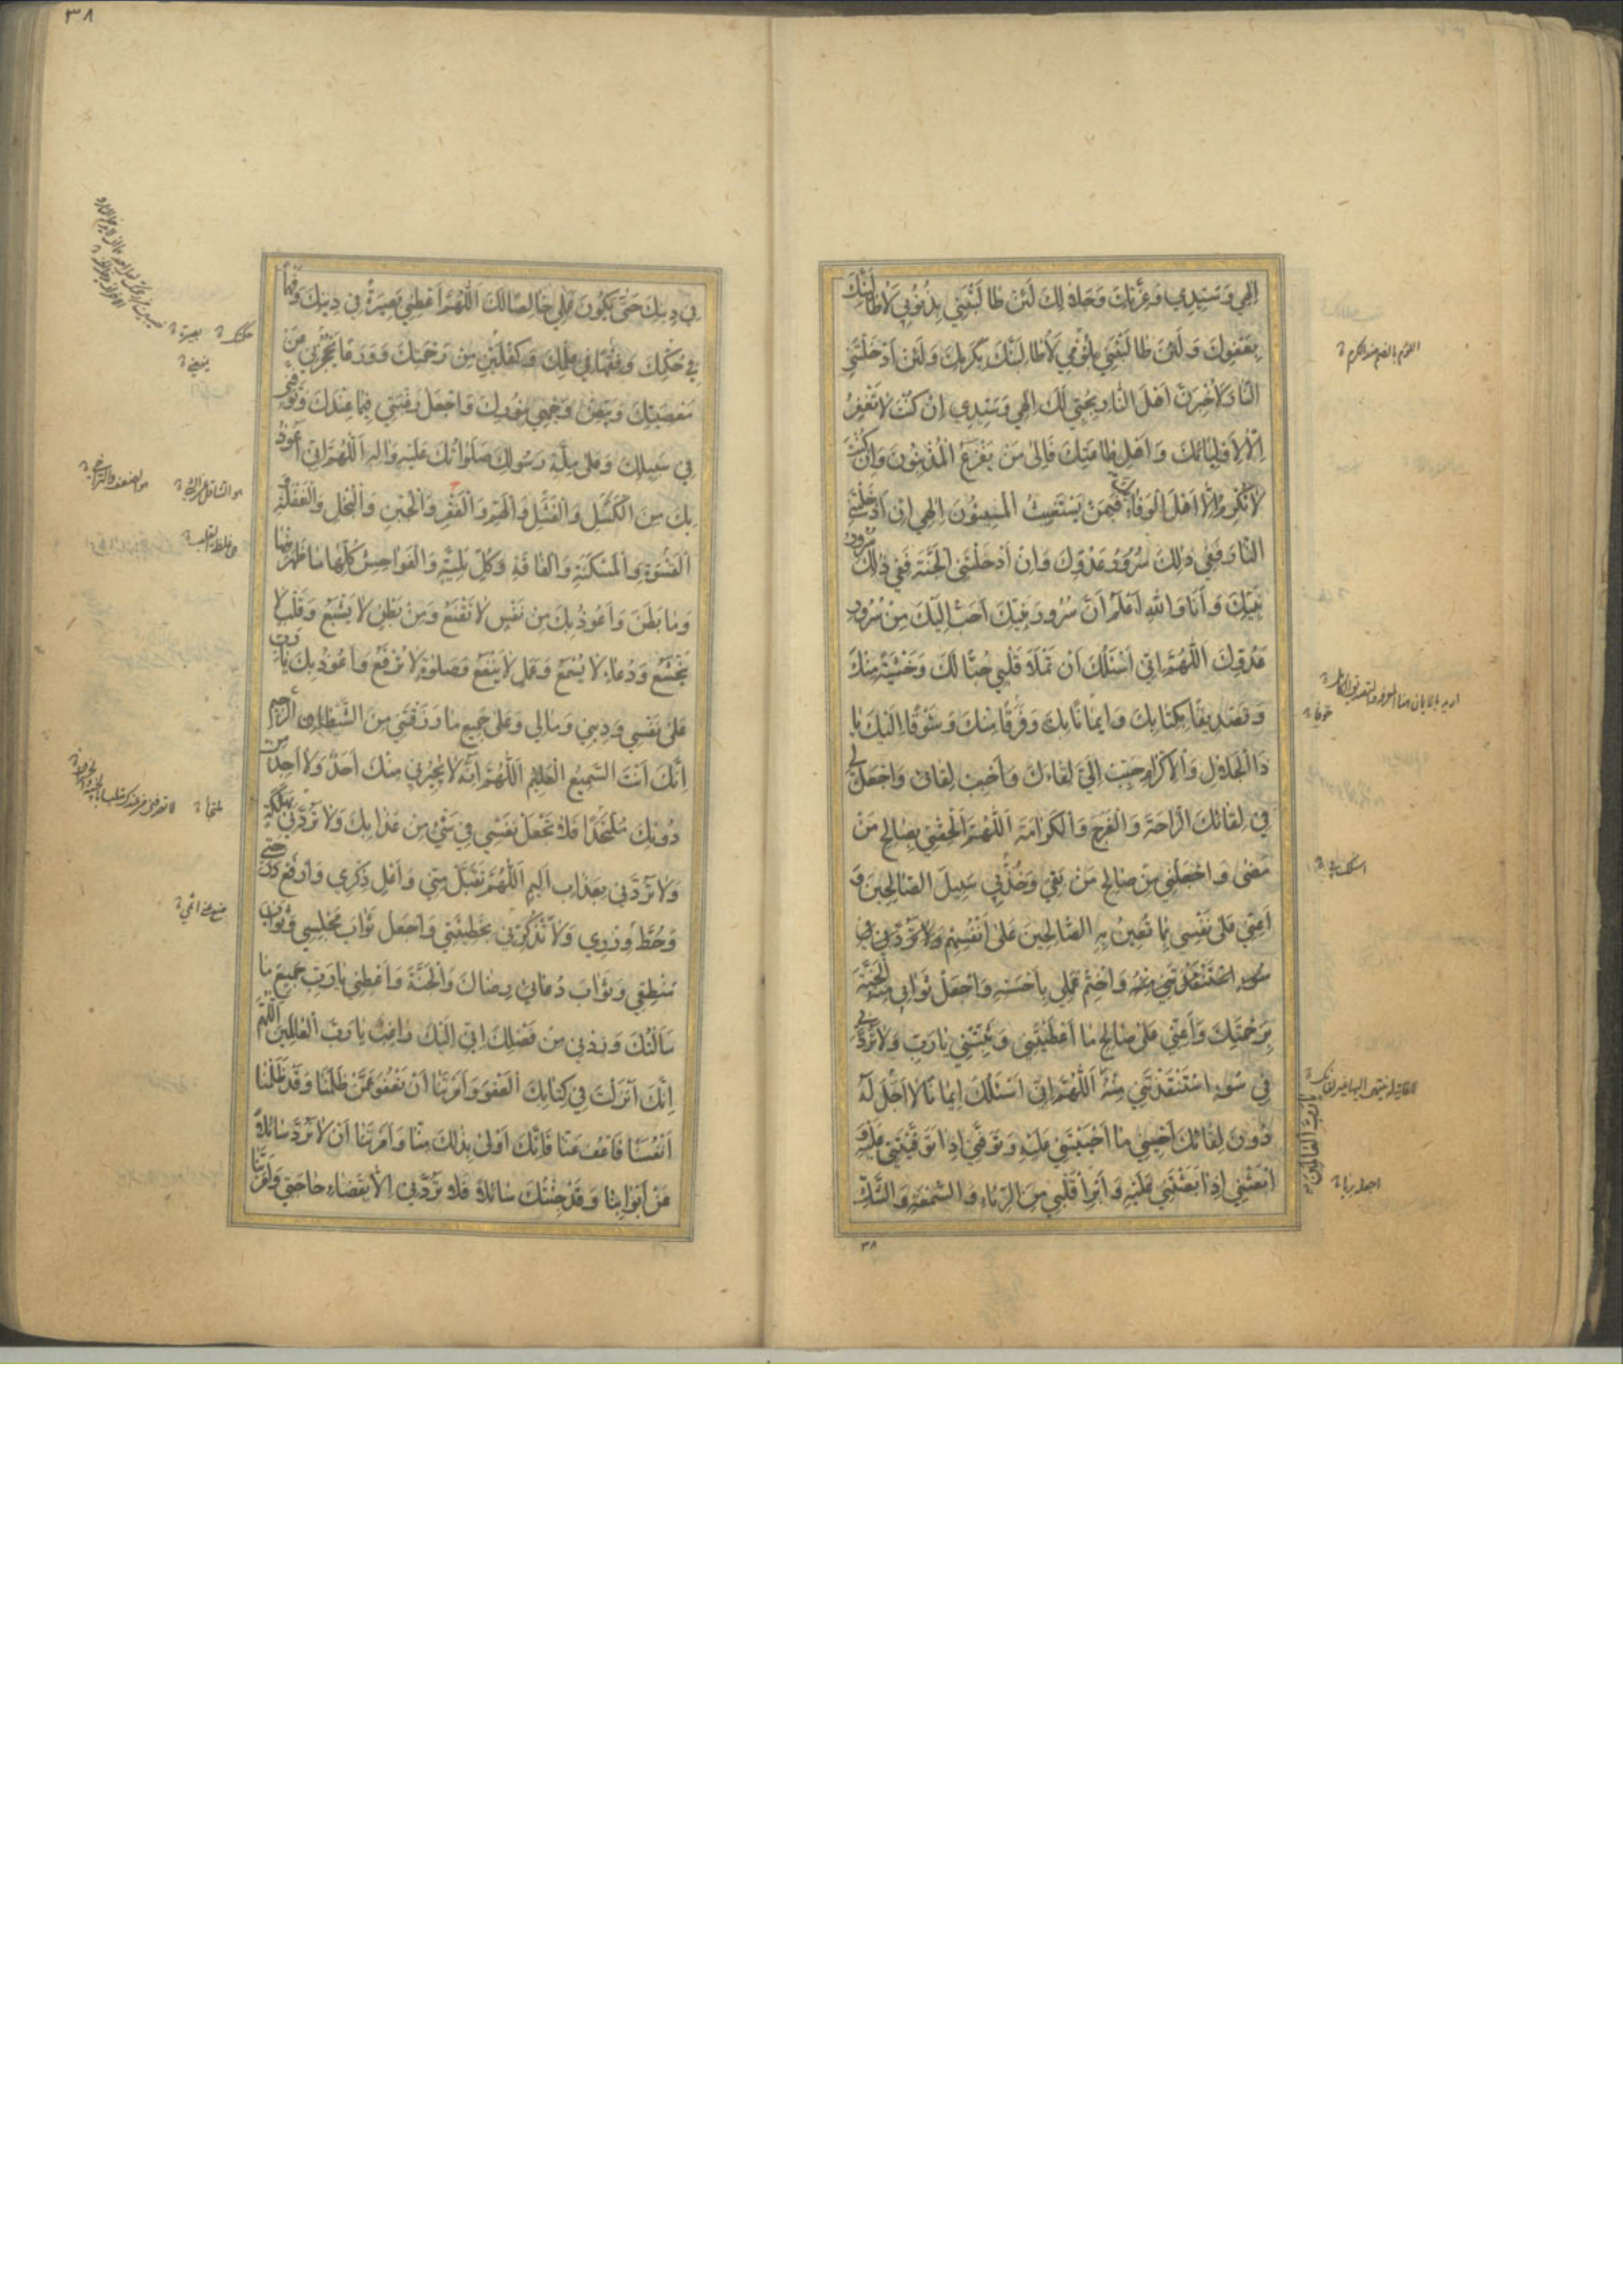 اِلٰهِي وَسَيِّدِي وَعِزَّتِكَ وَجَلَالِكَ لَئِنْ طَالَبْتَنِي بِذُنُوبِي لَأُطَالِبَنَّكَ
بِعَفْوِكَ وَلَئِنْ طَالَبْتَنِي بِلُؤْمِي لَأُطَالِبَنَّكَ بِكَرَمِكَ وَلَئِنْ اَدْخَلْتَنِي
النَّارَ لَأُخْبِرَنَّ اَهْلَ النَّارِ بِحُبِّي لَكَ اِلٰهِي وَسَيِّدِي اِنْ كُنْتَ لَا تَغْفِرُ
اِلَّا لِاَوْلِيَائِكَ وَاَهْلِ طَاعَتِكَ فَاِلىٰ مَنْ يَفْزَعُ الْمُذْنِبُونَ وَاِنْ كُنْتَ
لَا تُكْرِمُ اِلَّا اَهْلَ الْوَفَاءِ فَبِمَنْ يَسْتَغِيثُ الْمُسِيئُونَ اِلٰهِي اِنْ اَدْخَلْتَنِي
النَّارَ فَفِي ذٰلِكَ سُرُورُ عَدُوِّكَ وَاِنْ اَدْخَلْتَنِي الْجَنَّةَ فَفِي ذٰلِكَ سُرُورُ
نَبِيِّكَ وَاَنَا وَاللهِ اَعْلَمُ اَنَّ سُرُورَ نَبِيِّكَ اَحَبُّ اِلَيْكَ مِنْ سُرُورِ
عَدُوِّكَ اَللّٰهُمَّ اِنِّي اَسْئَلُكَ اَنْ تَمْلَأَ قَلْبِي حُبًّا لَكَ وَخَشْيَةً مِنْكَ
وَتَصْدِيقًا بِكِتَابِكَ وَاِيمَانًا بِكَ وَفَرَقًا مِنْكَ وَشَوْقًا اِلَيْكَ يَا
ذَا الْجَلَالِ وَالْاِكْرَامِ حَبِّبْ اِلَيَّ لِقَاءَكَ وَاَحْبِبْ لِقَائِي وَاجْعَلْ لِي
فِي لِقَائِكَ الرَّاحَةَ وَالْفَرَجَ وَالْكَرَامَةَ اَللّٰهُمَّ اَلْحِقْنِي بِصَالِحِ مَنْ
مَضىٰ وَاجْعَلْنِي مِنْ صَالِحِ مَنْ بَقِيَ وَخُذْ بِي سَبِيلَ الصَّالِحِينَ وَ
اَعِنِّي عَلىٰ نَفْسِي بِمَا تُعِينُ بِهِ الصَّالِحِينَ عَلىٰ اَنْفُسِهِمْ وَلَا تَرُدَّنِي فِي
سُوءٍ اسْتَنْقَذْتَنِي مِنْهُ وَاخْتِمْ عَمَلِي بِاَحْسَنِهِ وَاجْعَلْ ثَوَابِي مِنْهُ الْجَنَّةَ
بِرَحْمَتِكَ وَاَعِنِّي عَلىٰ صَالِحِ مَا اَعْطَيْتَنِي وَثَبِّتْنِي يَا رَبِّ وَلَا تَرُدَّنِي
فِي سُوءٍ اسْتَنْقَذْتَنِي مِنْهُ اَللّٰهُمَّ اِنِّي اَسْئَلُكَ اِيمَانًا لَا اَجَلَ لَهُ
دُونَ لِقَائِكَ اَحْيِنِي مَا اَحْيَيْتَنِي عَلَيْهِ وَتَوَفَّنِي اِذَا تَوَفَّيْتَنِي عَلَيْهِ وَ
ابْعَثْنِي اِذَا بَعَثْتَنِي عَلَيْهِ وَاَبْرِأْ قَلْبِي مِنَ الرِّيَاءِ وَالسُّمْعَةِ وَالشَّكِّ
يَا رَبَّ الْعَالَمِينَ
٣٨
٣٨
فِي دِينِكَ حَتّىٰ يَكُونَ عَمَلِي خَالِصًا لَكَ اَللّٰهُمَّ اَعْطِنِي بَصِيرَةً فِي دِينِكَ وَفَهْمًا
فِي حُكْمِكَ وَفِقْهًا فِي عِلْمِكَ وَكِفْلَيْنِ مِنْ رَحْمَتِكَ وَوَرَعًا يَحْجُزُنِي عَنْ
مَعْصِيَتِكَ وَبَيِّضْ وَجْهِي بِنُورِكَ وَاجْعَلْ رَغْبَتِي فِيمَا عِنْدَكَ وَتَوَفَّنِي
فِي سَبِيلِكَ وَعَلىٰ مِلَّةِ رَسُولِكَ صَلَوَاتُكَ عَلَيْهِ وَاٰلِهِ اَللّٰهُمَّ اِنِّي اَعُوذُ
بِكَ مِنَ الْكَسَلِ وَالْفَشَلِ وَالْهَمِّ وَالْفَقْرِ وَالْجُبْنِ وَالْبُخْلِ وَالْغَفْلَةِ
الْقَسْوَةِ وَالْمَسْكَنَةِ وَالْفَاقَةِ وَكُلِّ بَلِيَّةٍ وَالْفَوَاحِشِ كُلِّهَا مَا ظَهَرَ مِنْهَا
وَمَا بَطَنَ وَاَعُوذُ بِكَ مِنْ نَفْسٍ لَا تَقْنَعُ وَمِنْ بَطْنٍ لَا يَشْبَعُ وَقَلْبٍ لَا
يَخْشَعُ وَدُعَاءٍ لَا يُسْمَعُ وَعَمَلٍ لَا يَنْفَعُ وَصَلٰوةٍ لَا تُرْفَعُ وَاَعُوذُ بِكَ يَا رَبِّ
عَلىٰ نَفْسِي وَدِينِي وَمَالِي وَعَلىٰ جَمِيعِ مَا رَزَقْتَنِي مِنَ الشَّيْطَانِ الرَّجِيمِ
اِنَّكَ اَنْتَ السَّمِيعُ الْعَلِيمُ اَللّٰهُمَّ اِنَّهُ لَا يُجِيرُنِي مِنْكَ اَحَدٌ وَلَا اَجِدُ مِنْ
دُونِكَ مُلْتَحَدًا فَلَا تَجْعَلْ نَفْسِي فِي شَيْءٍ مِنْ عَذَابِكَ وَلَا تَرُدَّنِي بِهَلَكَةٍ
وَلَا تَرُدَّنِي بِعَذَابٍ اَلِيمٍ اَللّٰهُمَّ تَقَبَّلْ مِنِّي وَاَعْلِ ذِكْرِي وَارْفَعْ دَرَجَتِي
وَحُطَّ وِزْرِي وَلَا تَذْكُرْنِي بِخَطِيئَتِي وَاجْعَلْ ثَوَابَ مَجْلِسِي وَثَوَابَ
مَنْطِقِي وَثَوَابَ دُعَائِي رِضَاكَ وَالْجَنَّةَ وَاَعْطِنِي يَا رَبِّ جَمِيعَ مَا
سَاَلْتُكَ وَزِدْنِي مِنْ فَضْلِكَ اِنِّي اِلَيْكَ رَاغِبٌ يَا رَبَّ الْعَالَمِينَ اَللّٰهُمَّ
اِنَّكَ اَنْزَلْتَ فِي كِتَابِكَ الْعَفْوَ وَاَمَرْتَنَا اَنْ نَعْفُوَ عَمَّنْ ظَلَمَنَا وَقَدْ ظَلَمْنَا
اَنْفُسَنَا فَاعْفُ عَنَّا فَاِنَّكَ اَوْلىٰ بِذٰلِكَ مِنَّا وَاَمَرْتَنَا اَنْ لَا نَرُدَّ سَائِلًا
عَنْ اَبْوَابِنَا وَقَدْ جِئْتُكَ سَائِلًا فَلَا تَرُدَّنِي اِلَّا بِقَضَاءِ حَاجَتِي وَاَمَرْتَنَا